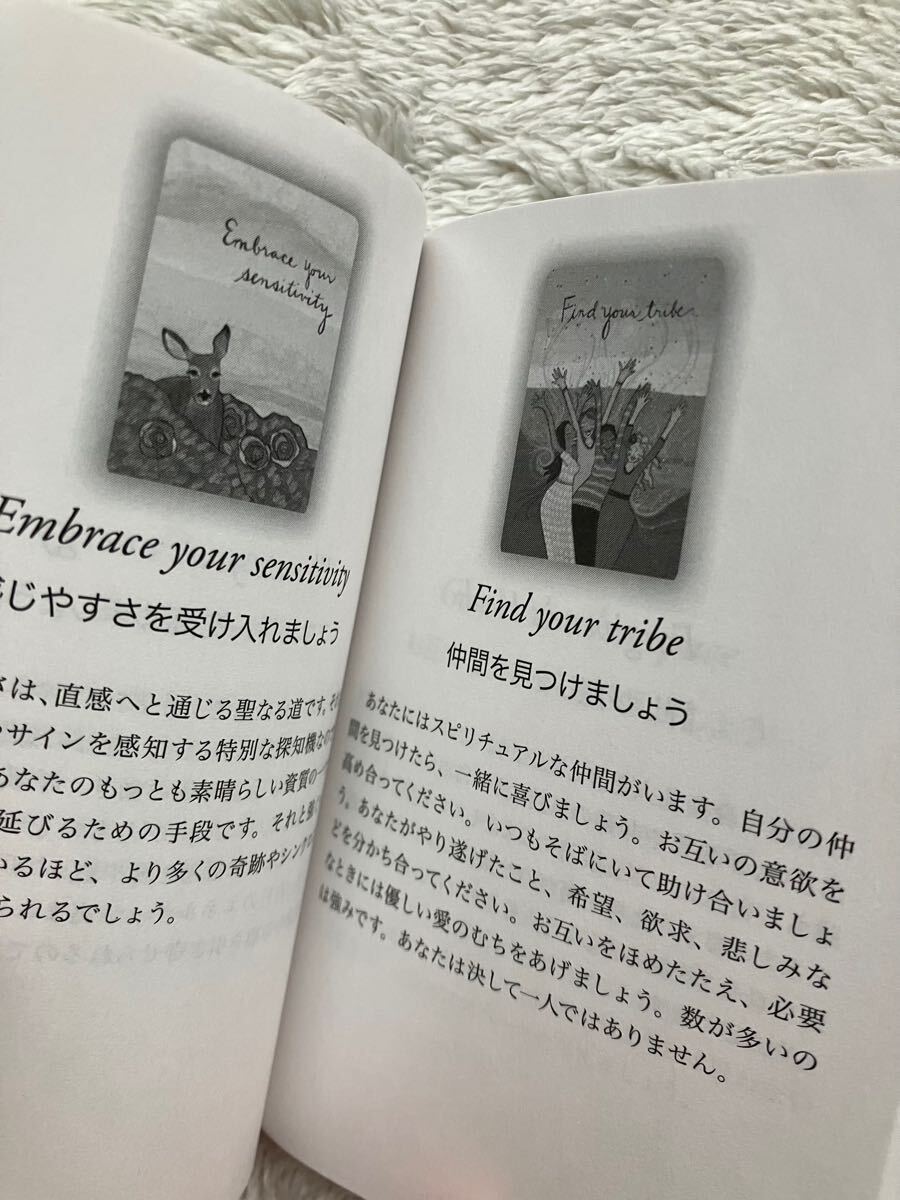 Embrace your
sensitivity
Embrace your sensitivity
じやすさを受け入れましょう
さは、直感へと通じる聖なる道です。
サインを感知する特別な探知機なの
あなたのもっとも素晴らしい資質の一
延びるための手段です。それと
いるほど、より多くの奇跡やシンク
られるでしょう。
Find your tribe
Find your tribe
仲間を見つけましょう
あなたにはスピリチュアルな仲間がいます。自分の仲
間を見つけたら、一緒に喜びましょう。お互いの意欲を
高め合ってください。いつもそばにいて助け合いましょ
う。あなたがやり遂げたこと、希望、欲求、悲しみな
どを分かち合ってください。お互いをほめたたえ、必要
なときには優しい愛のむちをあげましょう。数が多いの
は強みです。あなたは決して一人ではありません。